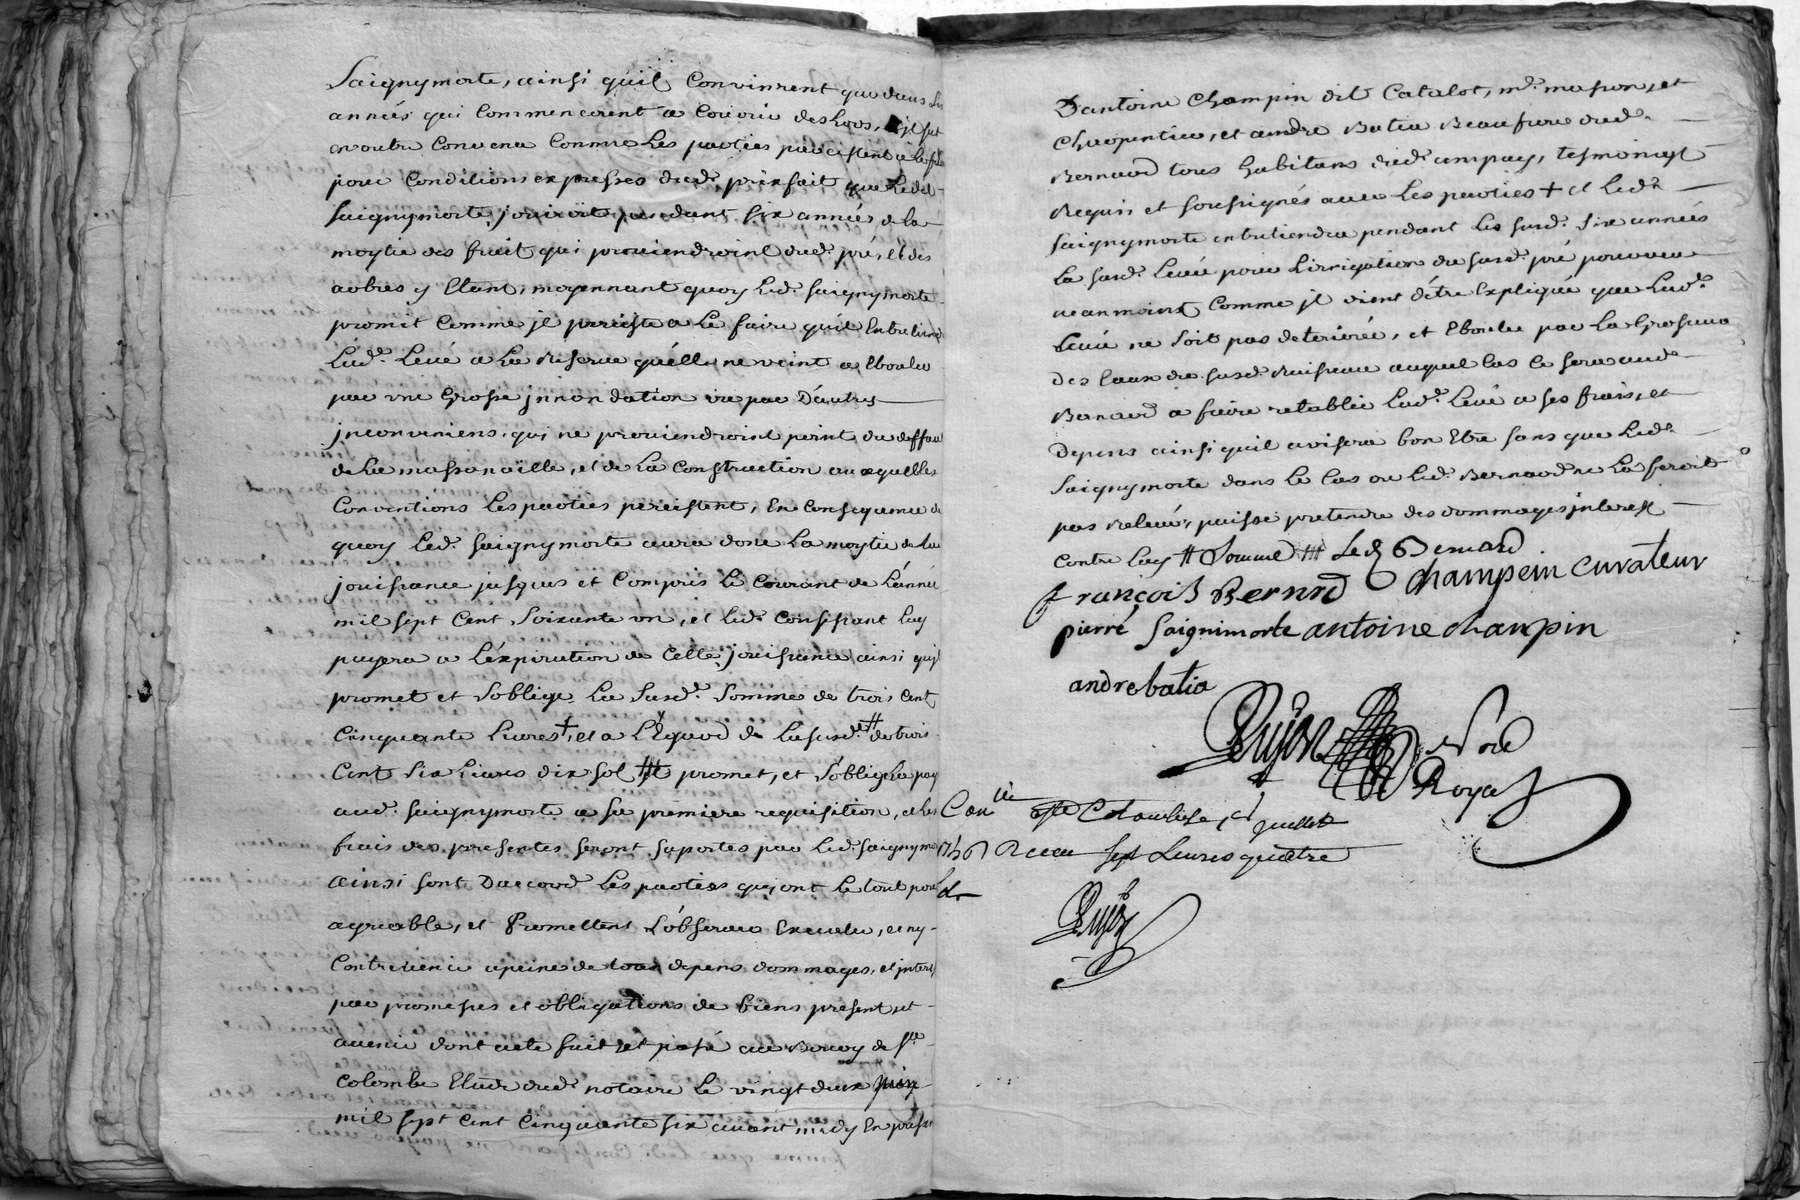 Saignymorte, ainsi quil Convinrent que dans les
années qui Commencerent a Courir deshors, il fut
en outre Convenu Comme Les parties percistent a le
pour Conditions expresses dud. prixfait que Ledit
Saignymorte jouiroit pendant six années de la
moytie des fruit qui proviendroint dud. pré, et des
arbres y Etant, moyennant quoy Led. Saignymorte
promit Comme jl perciste a Le faire quil Entretiend
Lad. Levé a La reserve quélle ne veint a Ebouler
par une Grosse jnnondation ou par Dautres
jnconveniens qui ne proviendroint point du deffau
de La massonaille, et de La Construction auxquelles
Conventions Les parties percistent, En Consequence de
quoy Led. Saignymorte aura donc La moytie de La
jouissance jusques et Compris Le Courant de L'année
mil sept Cent Soixante un, et Led. Consistant Luy
payera a L'éxpiration de Cette jouissance ainsi quil
promet et S'oblige La Susd. Somme de trois Cent
Cinquante Livres +, et a L'Egard de La susd. # de trois
Cent Six Livres dix sol promet, et S'oblige La pay
aud. Saignymorte a Sa premiere requisition, et Les
frais des presentes seront suportes par Led. Saignymor
ainsi sont D'accord Les parties qui ont Le tout pour
agreable, et Promettent L'observer Executer, et ny
Contrevenir a peine de tous depens dommages, et jnterets
par promesses et obligations de biens present et
avenir dont acte fait et passé au Bourg de Ste
Colombe Etude dud. notaire Le vingt deux juin
mil sept Cent Cinquante six avant midy En presance
D'antoine Champin dit Catalot, me. masson, et
Charpentier, et andre Batia Beaufrere dud.
Bernard tous habitans dud. ampuy, tesmoingt
Requis et soussignés avec Les parties + et Led.
Saignymorte entretiendra pendant Les susd. Six années
La susd. Levée pour L'irrigation du susd. pré pourveu
neanmoins Comme jl vient détre Expliqué que Lad.
Levée ne soit pas deteriorée, et Eboulee par La Grosseur
des Eaux du susd. Ruisseau auquel Cas Ce sera aud.
Bernard a faire retablir Lad. Levé a ses frais, et
depens ainsi quil avisera bon Etre sans que Led.
Saignymorte dans Le Cas ou Led. Bernard ne La feroit
pas relevé, puisse pretendre des dommages jnterest
Contre Luy # Somme ### Led Bernard
françois Bernard Champein Curateur
pierre Saignimorte antoine champin
andre batia
Dujon Nore
Royal
Conlle a Ste Colombe, juillet
1756 Receu sept Livres quatre
s.
Dujon